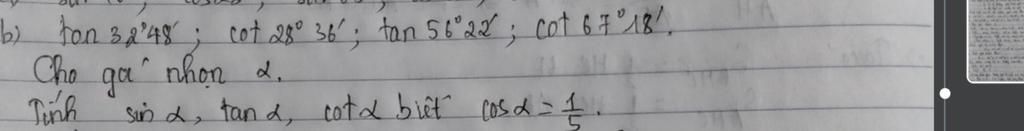 b) tan 32°48'; cot 28° 36'; tan 56°22'; cot 67°18'.
Cho góc nhọn α.
Tính sin α, tan α, cot α biết cos α = 1/5.